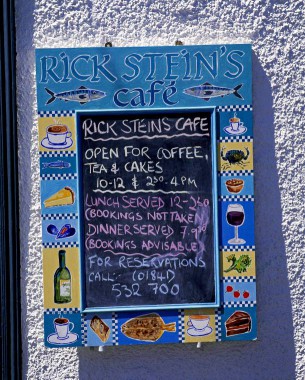 RICK STEIN'S
café
RICK STEINS CAFE
OPEN FOR COFFEE,
TEA & CAKES
10-12 & 2³⁰-4PM
LUNCH SERVED 12-2³⁰
(BOOKINGS NOT TAKEN)
DINNER SERVED 7.
(BOOKINGS ADVISABLE)
FOR RESERVATIONS
CALL:- (01841)
532 700